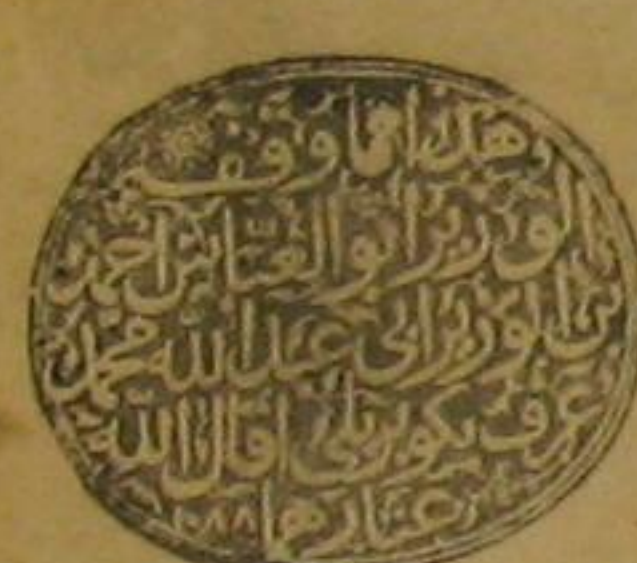 وهذا مما وقفه
الوزير ابو العباس احمد
بن الوزير ابي عبد الله محمد
عرف بكوبريلي اقال الله
عثارهما ١٠٨٨